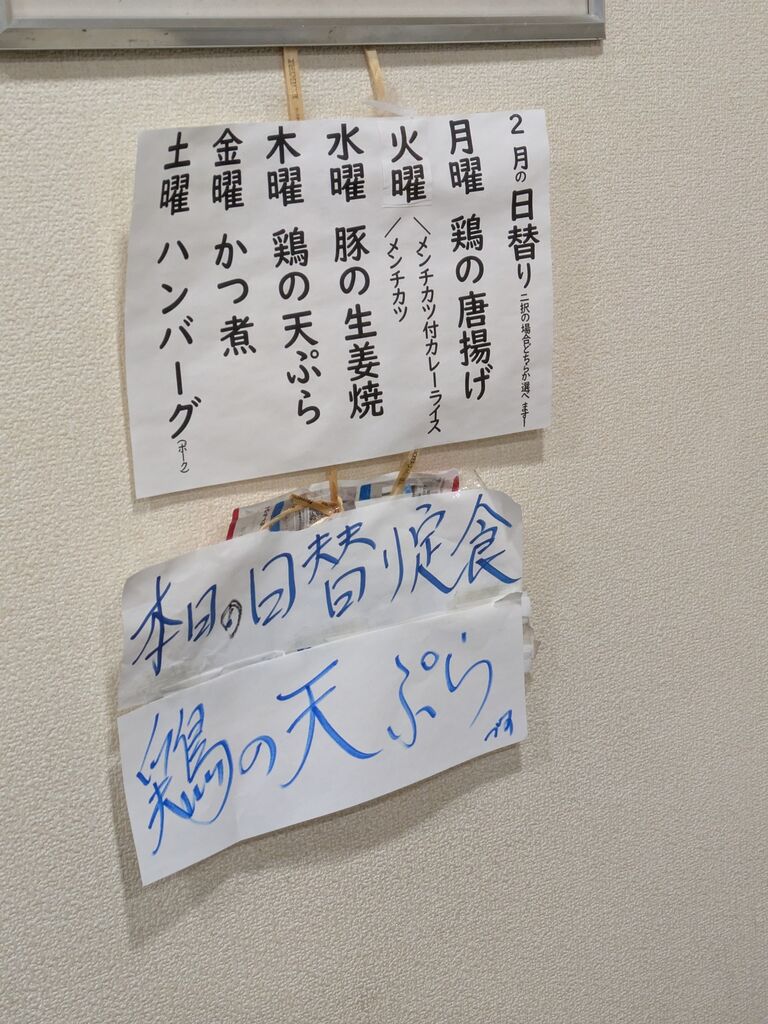 2月の日替り 二択の場合どちらか選べます!
月曜 鶏の唐揚げ
火曜 \メンチカツ付カレーライス
/メンチカツ
水曜 豚の生姜焼
木曜 鶏の天ぷら
金曜 かつ煮
土曜 ハンバーグ(ポーク)
本日の日替り定食
鶏の天ぷら
です